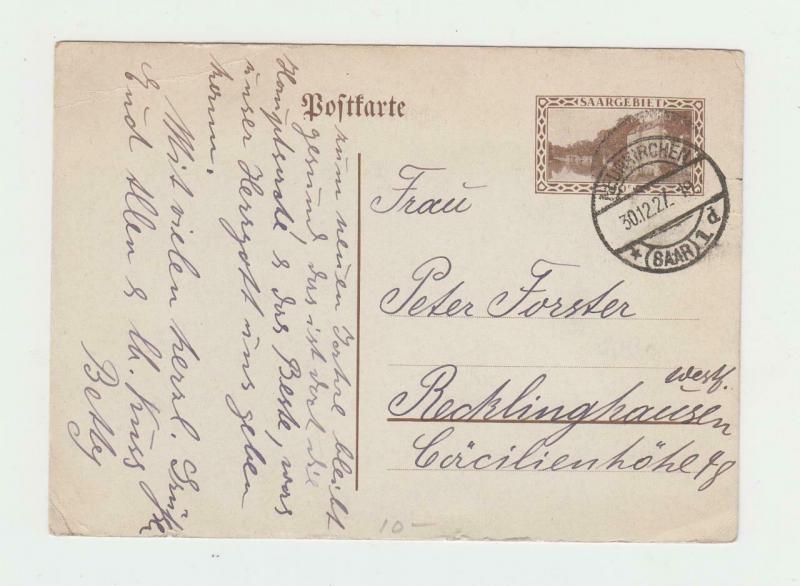 Postkarte
SAARGEBIET
NEUNKIRCHEN
30.12.27.
★ (SAAR) 1d
Frau
Peter Forster
Recklinghausen
Westf.
Cäcilienhöhe 48
zum neuen Jahre bleibt
gesund, das ist doch die
Hauptsache & das Beste, was
unser Herrgott uns geben
kann.
Mit vielen herzl. Grüße
Euch Allen &
Kuss
Betty
10-